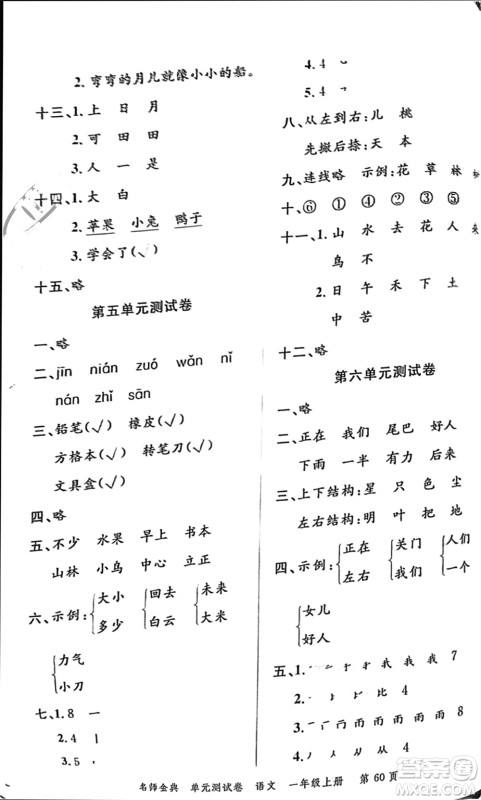 2. 弯弯的月儿就像小小的船。
十三、1. 上 日 月
2. 可 田 田
3. 人 一 是
十四、1. 大 白
2. 苹果 小兔 鸭子
3. 学会了(√)
十五、略
第五单元测试卷
一、略
二、jīn nián zuó wǎn nǐ
nán zhǐ sān
三、铅笔(√) 橡皮(√)
方格本(√) 转笔刀(√)
文具盒(√)
四、略
五、不少 水果 早上 书本
山林 小鸟 中心 立正
六、示例: 大小 多少 回去 白云 未来 大米
力气
小刀
七、1. 8 一
2. 4 丨
3. 5
4. 4
5. 4
八、从左到右:儿 桃
先撇后捺:天 本
九、连线略 示例:花 草 林
十、⑥ ① ④ ② ③ ⑤
十一、1. 山 水 去 花 人
鸟 不
2. 日 午 禾 下 土
中 苦
十二、略
第六单元测试卷
一、略
二、正在 我们 尾巴 好人
下雨 一半 有力 后来
三、上下结构:星 只 色 尘
左右结构:明 叶 把 地
四、示例: 正在 左右 关门 我们 人们 一个
女儿
好人
五、1. 我 我 我 7
2. 比 4
3. 雨 雨 雨 8
4. 4
名师金典 单元测试卷 语文 一年级上册 第 60 页